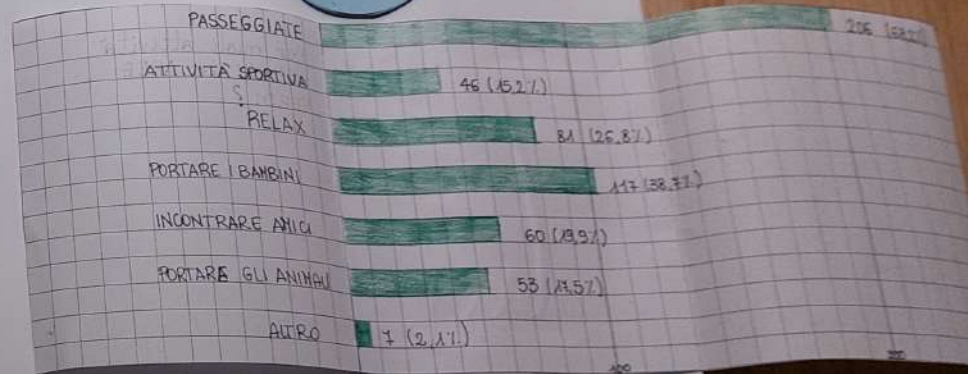 PASSEGGIATE 206 (68,2%)
ATTIVITÀ SPORTIVA 46 (15,2%)
RELAX 81 (26,8%)
PORTARE I BAMBINI 117 (38,7%)
INCONTRARE AMICI 60 (19,9%)
PORTARE GLI ANIMALI 53 (17,5%)
ALTRO 7 (2,1%)
100 200